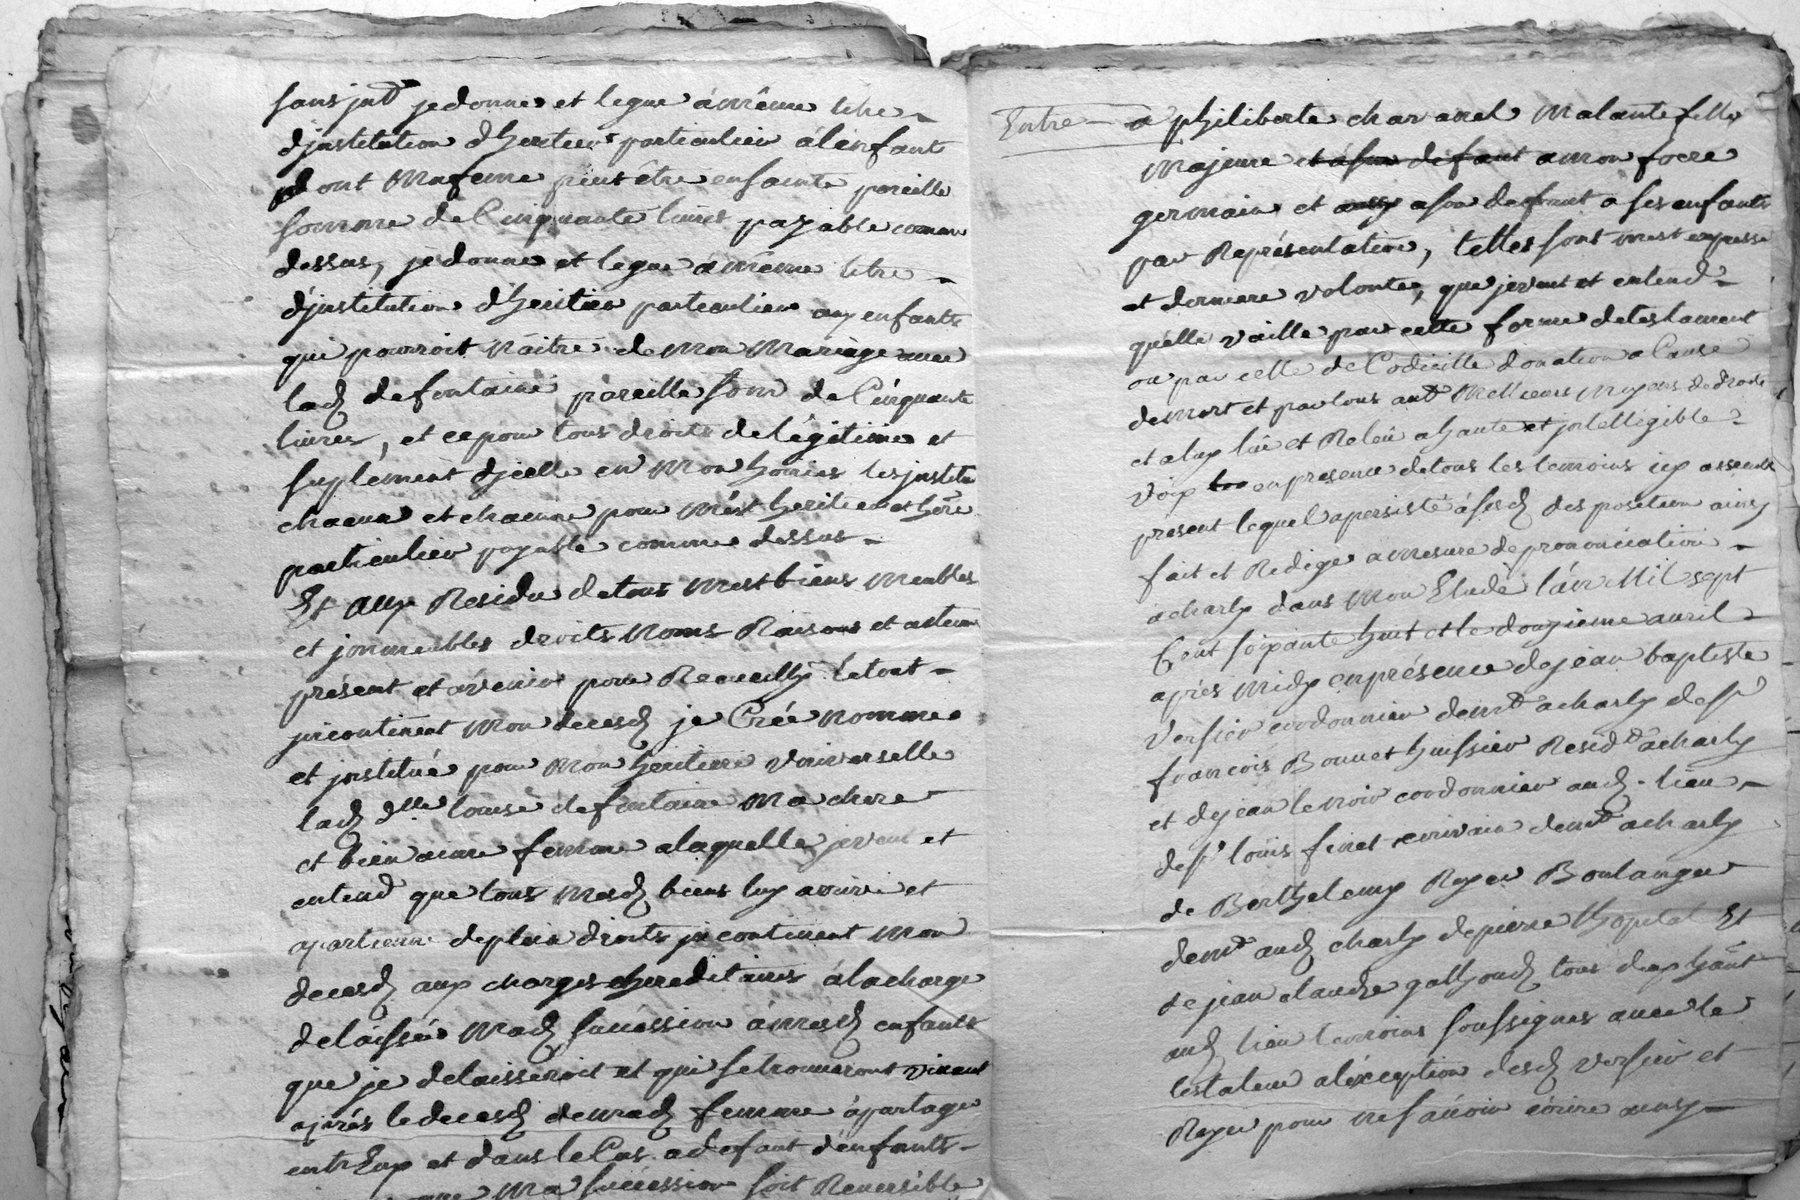 sans jnt je donne et legue à même titre
d'jnstitution d'heritier particulier à l'enfant
dont ma feme peut être enfainte pareille
somme de Cinquante livres payable comm
dessus, je donne et legue a même titre
d'jnstitution d'heritier particulier aux enfants
qui pourroit naitre de mon mariage avec
lad de fontaine pareille som de Cinquante
livres, et ce pour tous droits de légitime et
suplément d'jcelle en mon hoiries les jnstitu
chacun et chacune pour mest heritier et here
particulier payable comme dessus
Et aux Residu de tous mest biens meubles
et jmmeubles droits noms Raisons et actions
présent et avenir pour Recueilly le tout
jncontinent mon decesd je Crée nomme
et jnstitué pour mon heritiere vniverselle
lad dlle louise defontaine ma chere
et bien aimé femme a laquelle je veut et
entend que tous mesd biens luy arrive et
apartienne de plein droits jncontinent mon
decesd aux charges hereditaires à la charge
de laissée mad succession à mesd enfants
que je delaisseroit et qui se trouveront vivant
après le decesd de mad femme à partage
entr Eux et dans le Cas a defaut d'enfants
que Ma succession soit Reversible
Entre a philiberte charanel malante fille
majeure et a son defaut a mon frere
germain et aussy a son defaut a ses enfants
par Représentation, telles sont mest expresse
et derniere volonté, que je veut et entend
quelle vaille par cette forme de testament
ou par celle de Codicille donation a Cause
de mort et par tous aut meilleurs moyens de droits
et a luy lû et Relû a haute et jntelligible
voix en presence de tous les temoins icy assemb
present lequel a persisté à sesd disposition ainsy
fait et Redigé a mesure de prononciation
a charly dans mon Etude l'an Mil sept
Cent soixante huit et le douzieme avril
après midy en présence de jean baptiste
versier cordonnier demt a charly de sr
françois Bonnet huissier Residt a charly
et de jean lenoir cordonnier aud. lieu
de sr louis finet ecrivain demt a charly
de Berthelemy Royer Boulanger
demt aud charly de pierre lhopital Et
de jean claude galhoud tous d'eux habt
aud lieu temoins soussignes avec le
testateur a l'exception desd versier et
Royer pour ne savoir écrire ainsy